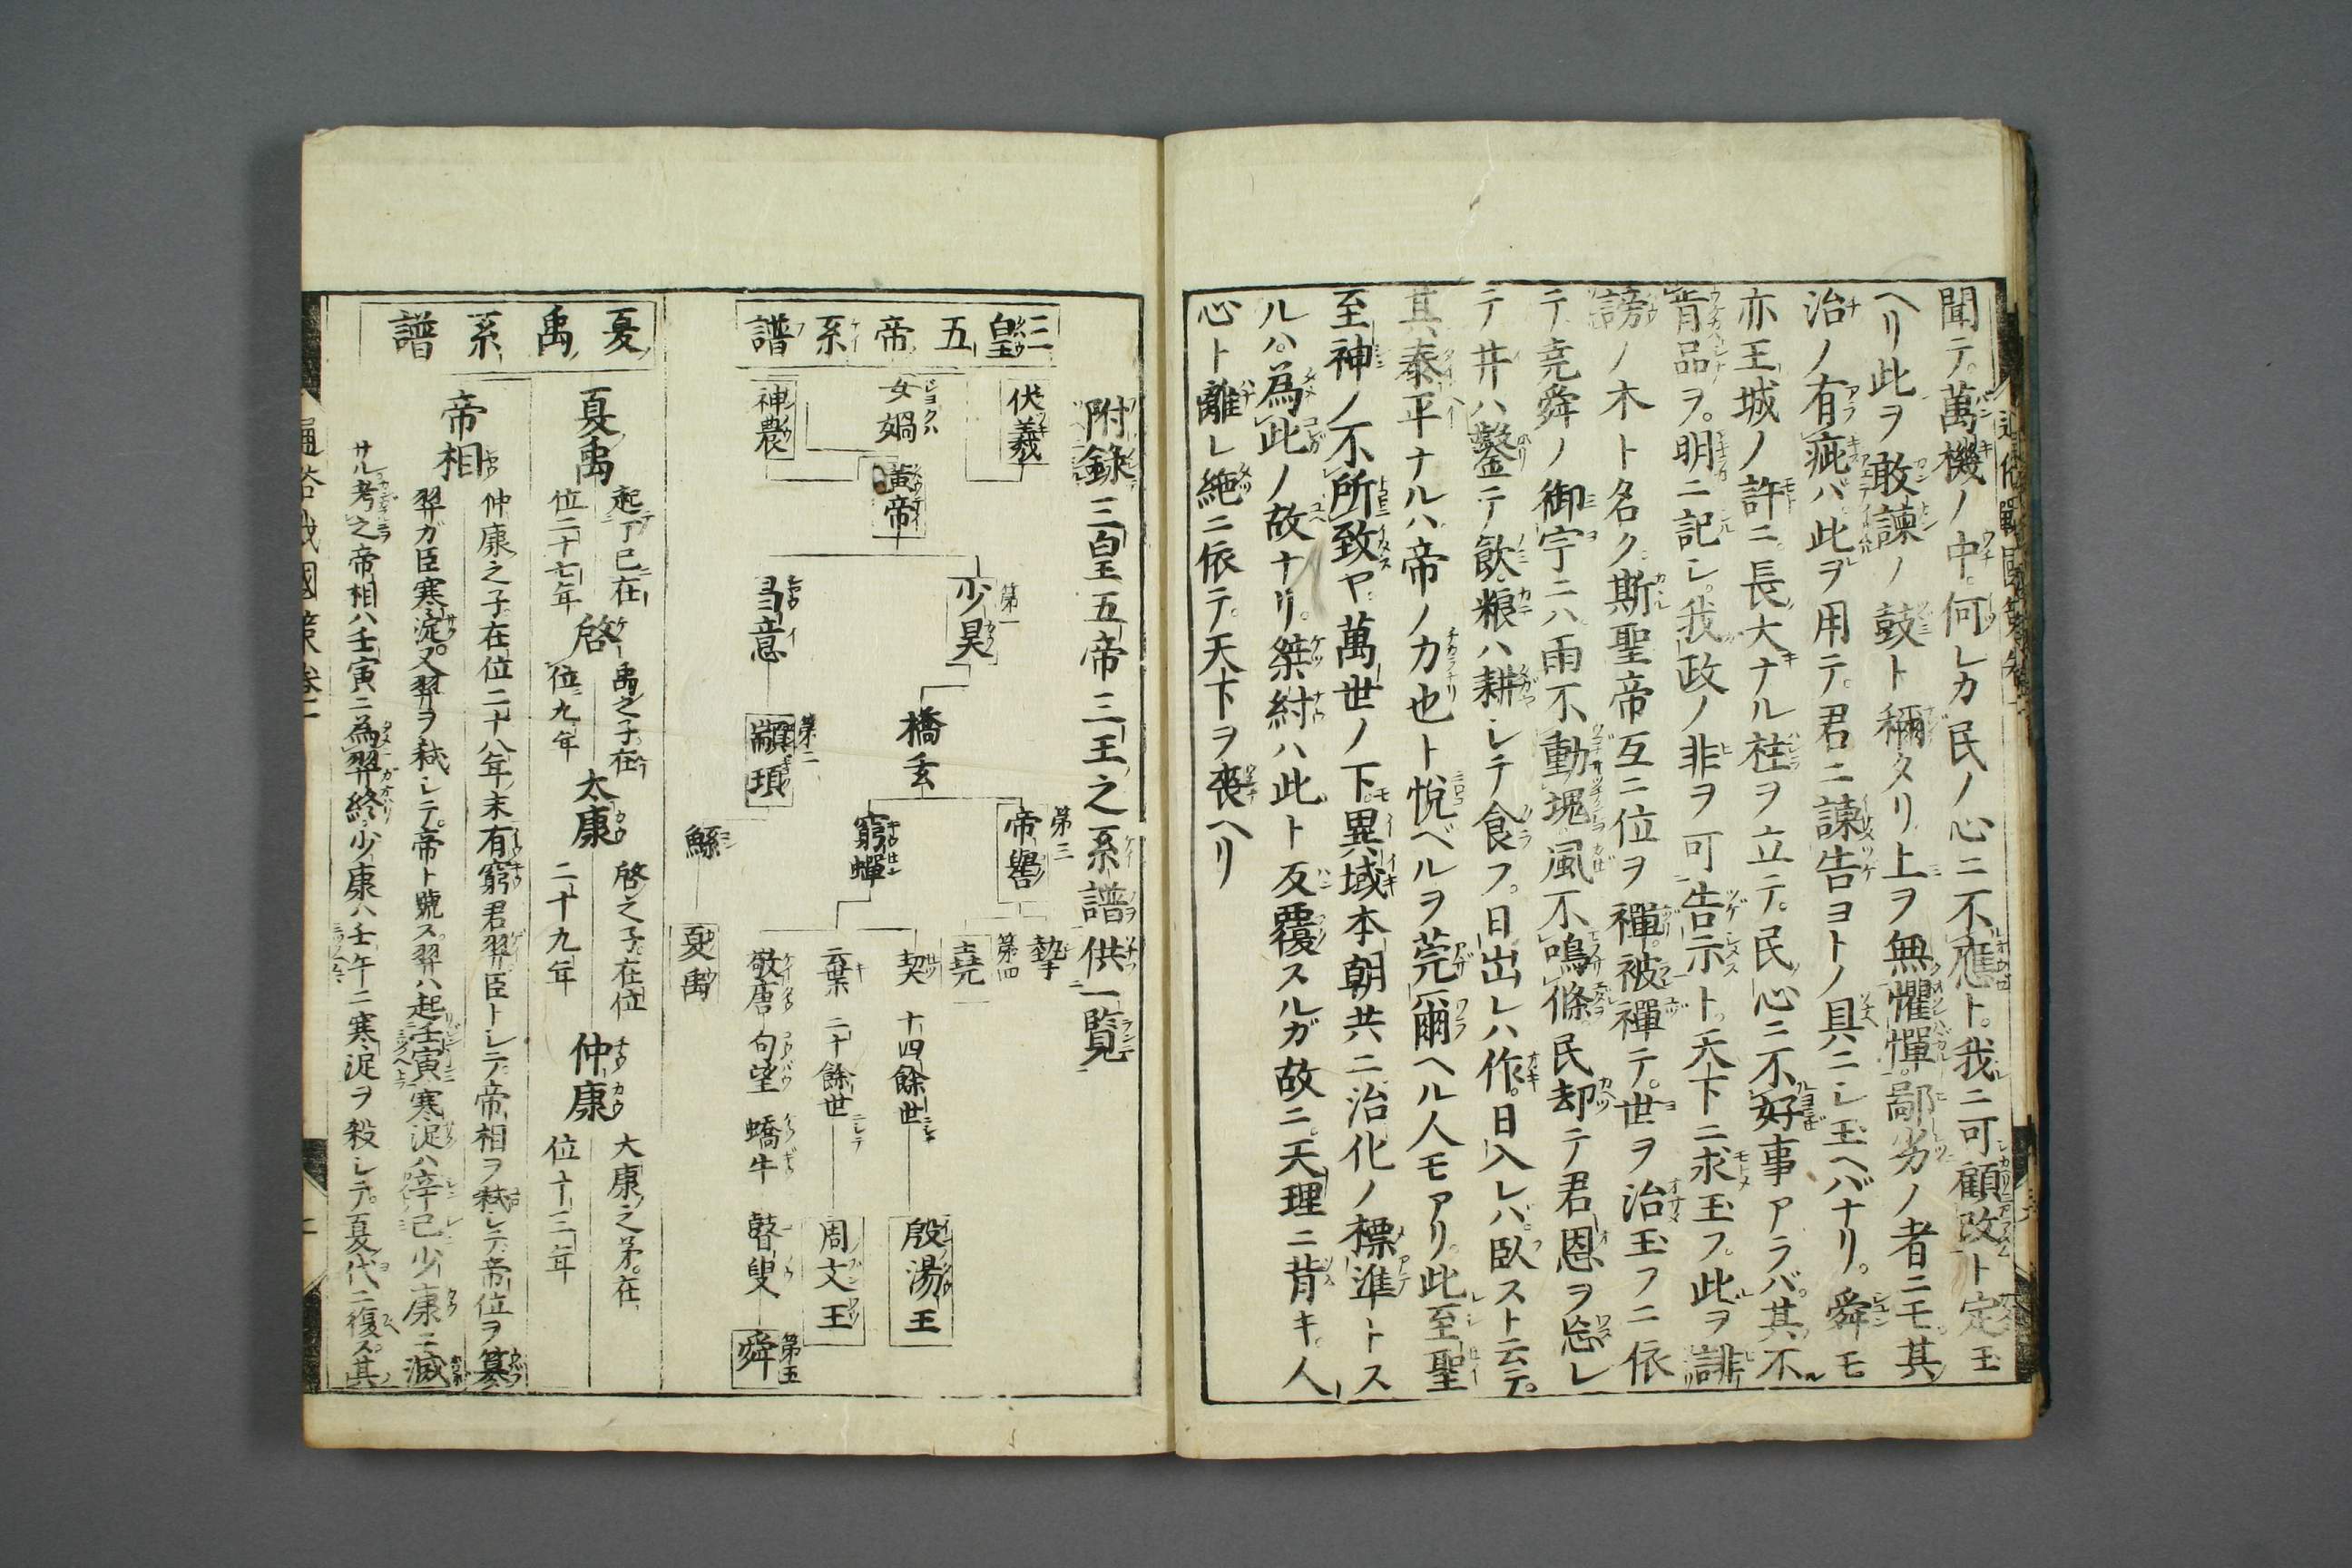 聞テ。萬機ノ中。何レカ民ノ心ニ不應ト。我ニ可顧改ト定玉
ヘリ此ヲ敢諫ノ鼓ト稱タリ上ヲ無懼憚。鄙劣ノ者ニモ其
治ノ有疵バ此ヲ用テ。君ニ諫告ヨトノ具ニシ玉ヘバナリ。舜モ
亦王城ノ許ニ。長大ナル柱ヲ立テ。民ノ心ニ不好事アラバ。其不
肯品ヲ。明ニ記シ。我政ノ非ヲ可告示ト。天下ニ求玉フ。此ヲ誹
謗ノ木ト名ク。斯聖帝互ニ位ヲ禪。被禪テ。世ヲ治玉フニ依
テ。堯舜ノ御宇ニハ。雨不動塊。風不鳴條。民却テ君恩ヲ忘レ
テ井ハ鑿テ飲。粮ハ耕シテ食フ。日出レハ作。日入レバ臥スト云テ。
其泰平ナルハ。帝ノ力也ト悦ベルヲ莞爾ヘル人モアリ。此至聖
至神ノ不所致ヤ。萬世ノ下。異域本朝共ニ治化ノ標準トス
ルハ。為此ノ故ナリ。桀紂ハ此ト反覆スルガ故ニ。天理ニ背キ。人
心ト離レ絶ニ依テ。天下ヲ喪ヘリ
附錄三皇五帝三王之系譜供一覽
三皇五帝系譜
伏羲
女媧
神農
黃帝
第一
少昊
昌意
橋玄
第二
顓頊
第三
帝嚳
窮蟬
鯀
摯
第四
堯
契 十四餘世 殷湯王
棄 二十餘世 周文王
敬康 句望 蟜牛 瞽叟 第五 舜
夏禹
夏禹系譜
夏禹 起丁巳在位二十七年 啓 禹之子。在位九年 太康 啓之子。在位二十九年 仲康 大康之弟。在位十三年
帝相 仲康之子。在位二十八年。末有窮君羿臣トシテ。帝相ヲ弑シテ。帝位ヲ簒
羿ガ臣寒浞。又羿ヲ弑シテ。帝ト號ス。羿ハ起壬寅。寒浞ハ辛己少康ニ滅
サル考之帝相ハ壬寅ニ為羿終。少康ハ壬午ニ寒浞ヲ殺シテ。夏代ニ復ス。其